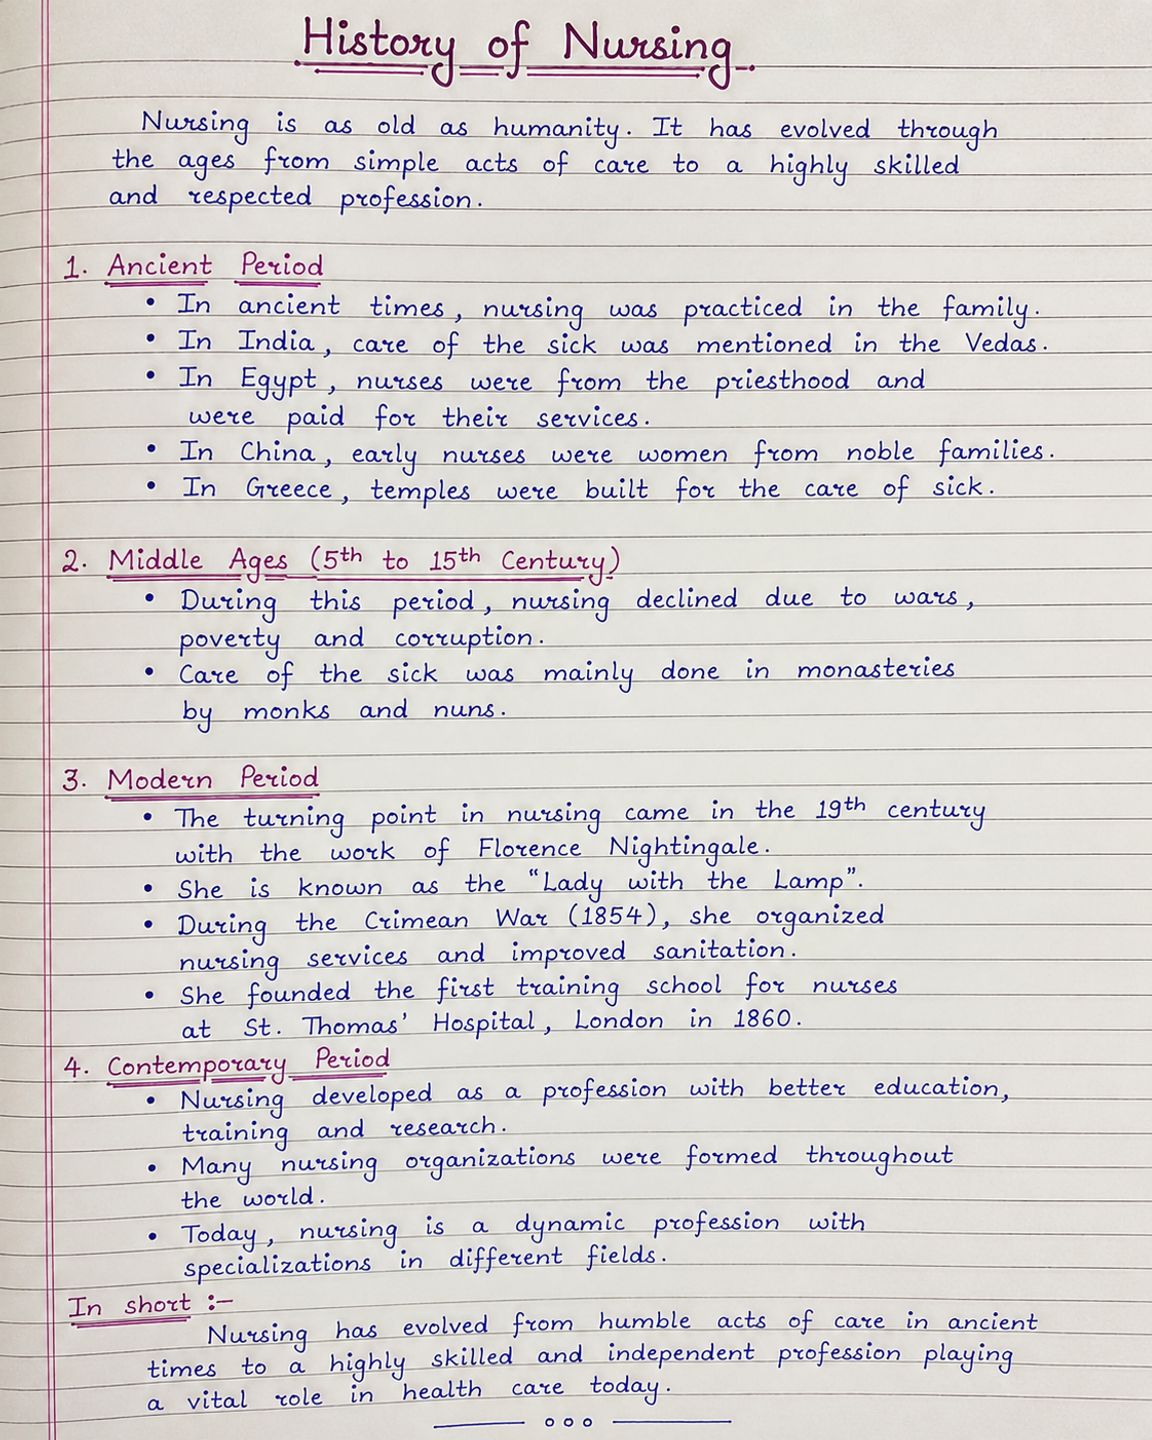 History of Nursing.
Nursing is as old as humanity. It has evolved through
the ages from simple acts of care to a highly skilled
and respected profession.
1. Ancient Period
• In ancient times, nursing was practiced in the family.
• In India, care of the sick was mentioned in the Vedas.
• In Egypt, nurses were from the priesthood and
were paid for their services.
• In China, early nurses were women from noble families.
• In Greece, temples were built for the care of sick.
2. Middle Ages (5th to 15th Century)
• During this period, nursing declined due to wars,
poverty and corruption.
• Care of the sick was mainly done in monasteries
by monks and nuns.
3. Modern Period
• The turning point in nursing came in the 19th century
with the work of Florence Nightingale.
• She is known as the "Lady with the Lamp".
• During the Crimean War (1854), she organized
nursing services and improved sanitation.
• She founded the first training school for nurses
at St. Thomas' Hospital, London in 1860.
4. Contemporary Period
• Nursing developed as a profession with better education,
training and research.
• Many nursing organizations were formed throughout
the world.
• Today, nursing is a dynamic profession with
specializations in different fields.
In short :-
Nursing has evolved from humble acts of care in ancient
times to a highly skilled and independent profession playing
a vital role in health care today.